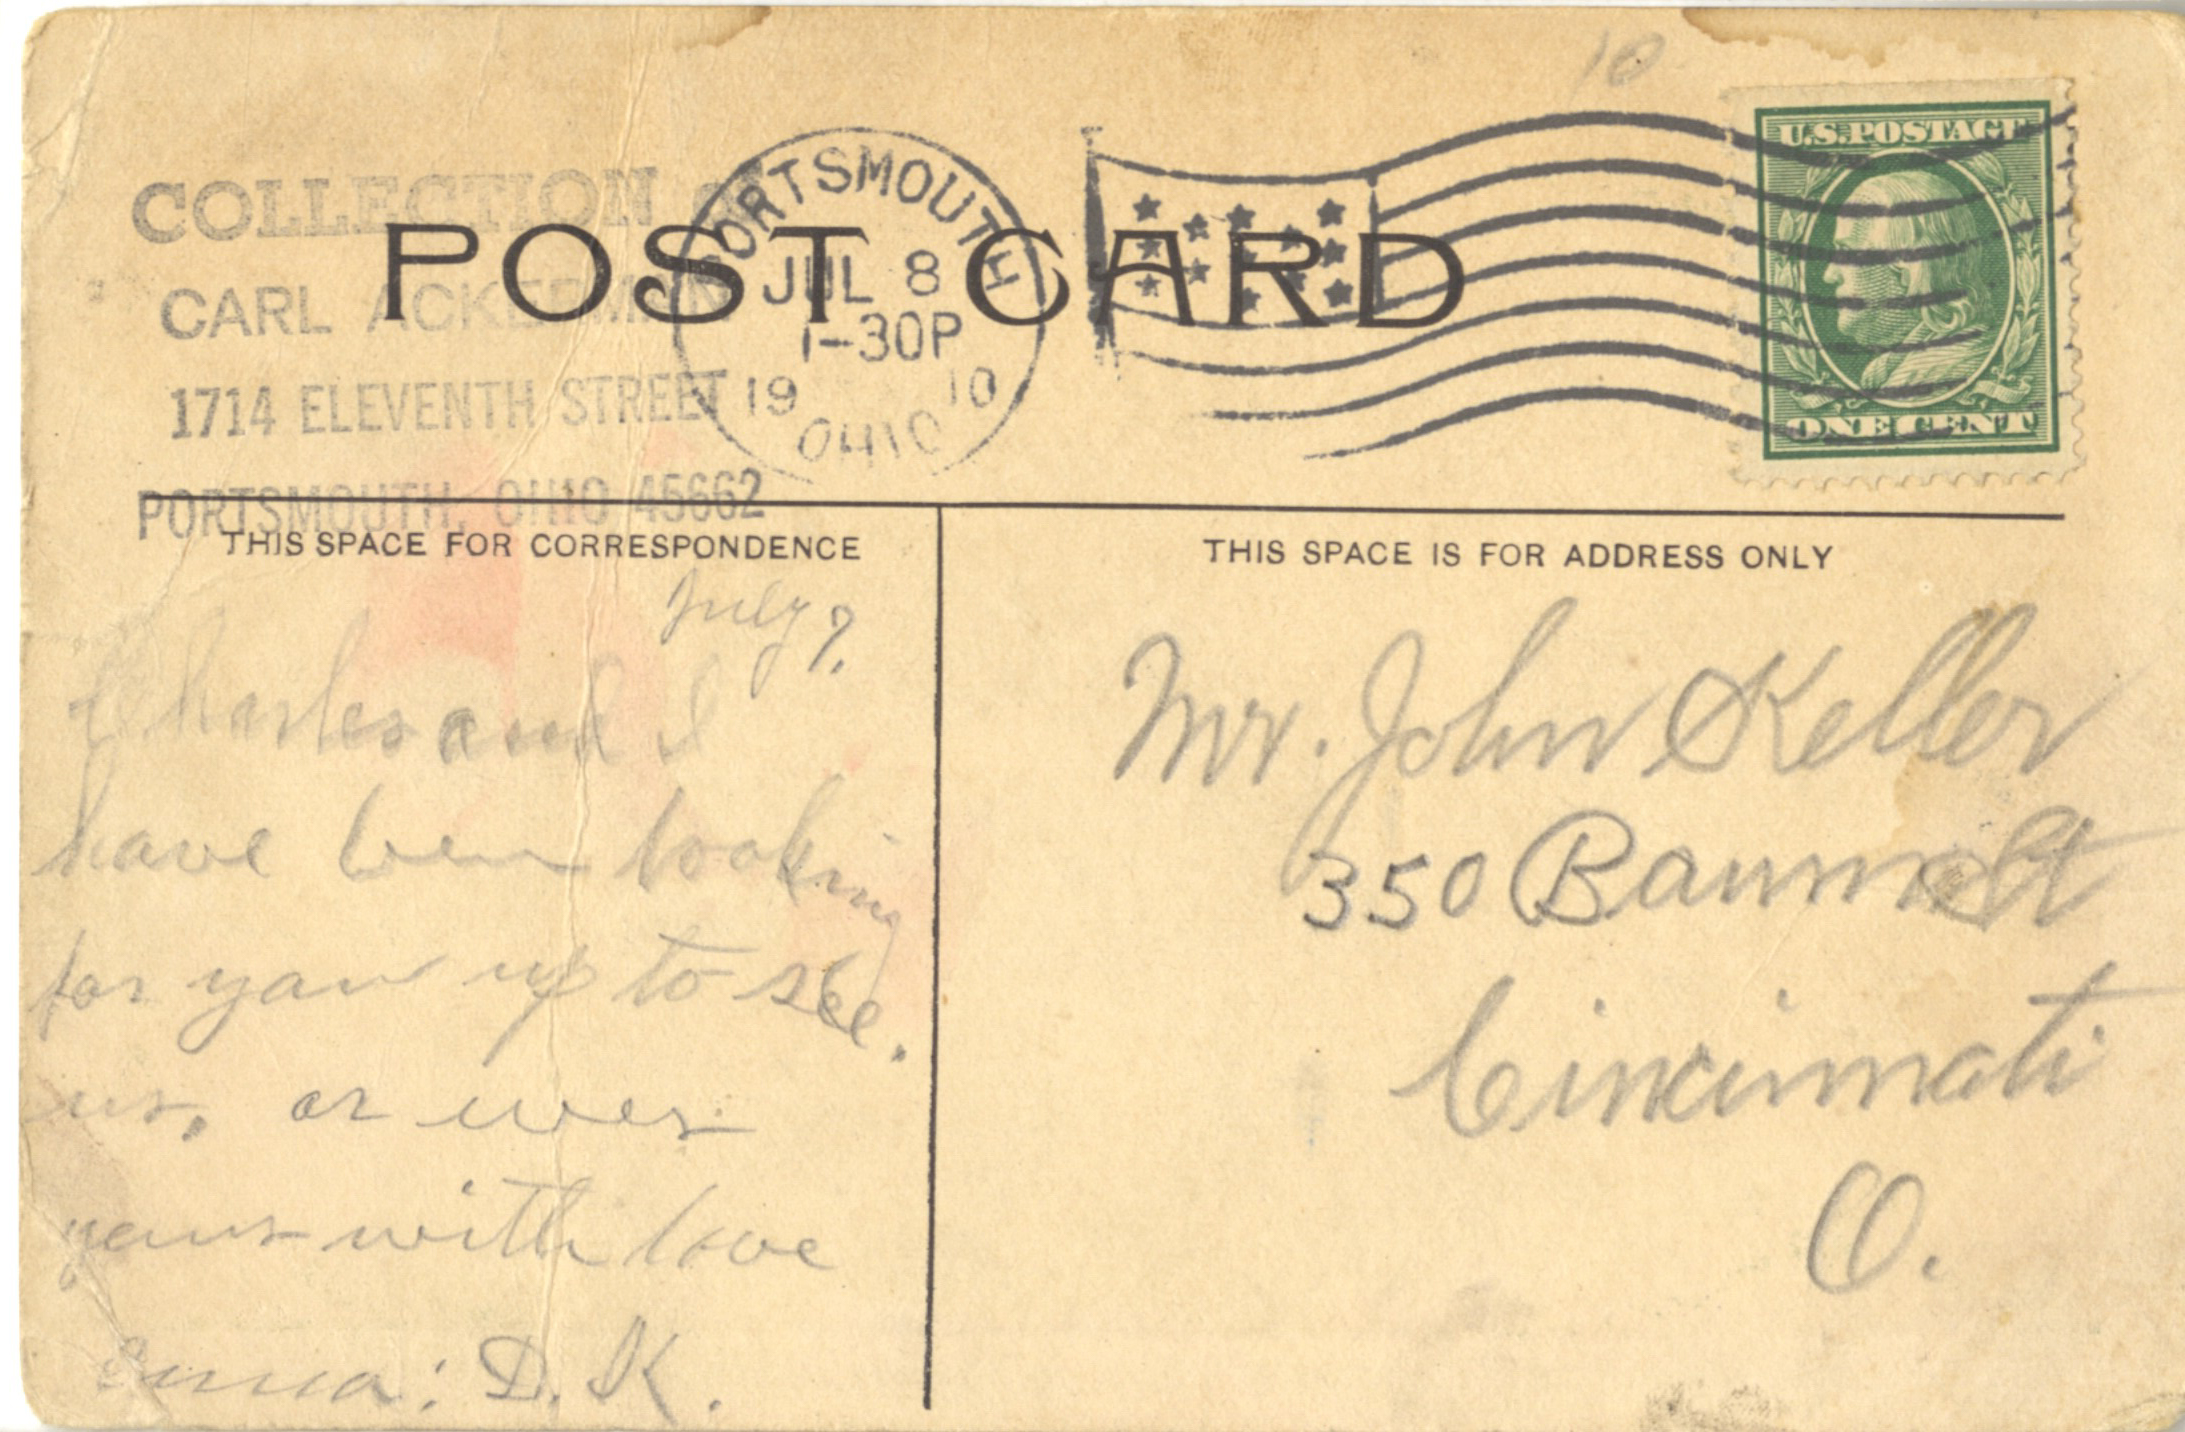 10
COLLECTION of
CARL ACKERMAN
1714 ELEVENTH STREET
PORTSMOUTH, OHIO 45662
PORTSMOUTH
JUL 8
1-30P
19 10
OHIO
U.S. POSTAGE
ONE CENT
POST CARD
THIS SPACE FOR CORRESPONDENCE
July 7.
Charles and I
have been looking
for you up to see.
us, or
yours with love
Emma: D. K.
THIS SPACE IS FOR ADDRESS ONLY
Mr. John Keller
350 St
Cincinnati
O.